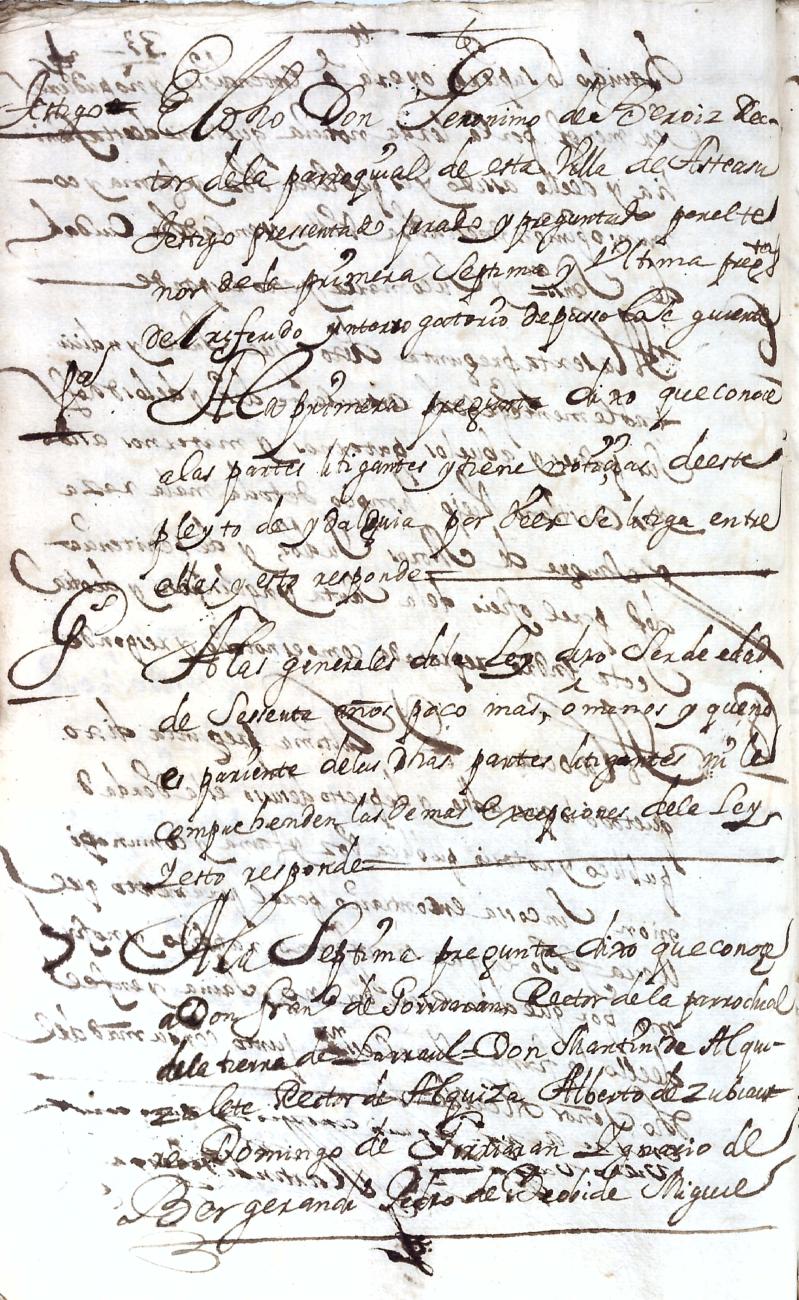 Testigo El dho Don Jeronimo de Rec-
tor de la parroquial de esta Villa de Asteasu
testigo pressentado jurado y preguntado por el te
nor de la primera septima y Ultima pregtas
del referido ynterrogatorio depuso lo se guiente
1ª A la primera pregunta dixo que conoce
a las partes litigantes y tiene noticias de este
pleyto de ydalguia por Veer se litiga entre
ellas y esto responde
Gs A las generales de la Ley dixo Ser de edad
de Sessenta años poco mas, o menos y que no
es pariente de las dhas partes litigantes ni le
comprehenden las demas Excepciones de la Ley
Y esto responde
7 A la Septima pregunta dixo que conoce
a Don Franco de Rector de la parrochial
de la tierra de Larraul = Don Martin de Alqui-
zalete Rector de Alquiza Alberto de Zubiaur
re Domingo de Ygnacio de
Pedro de Miguel